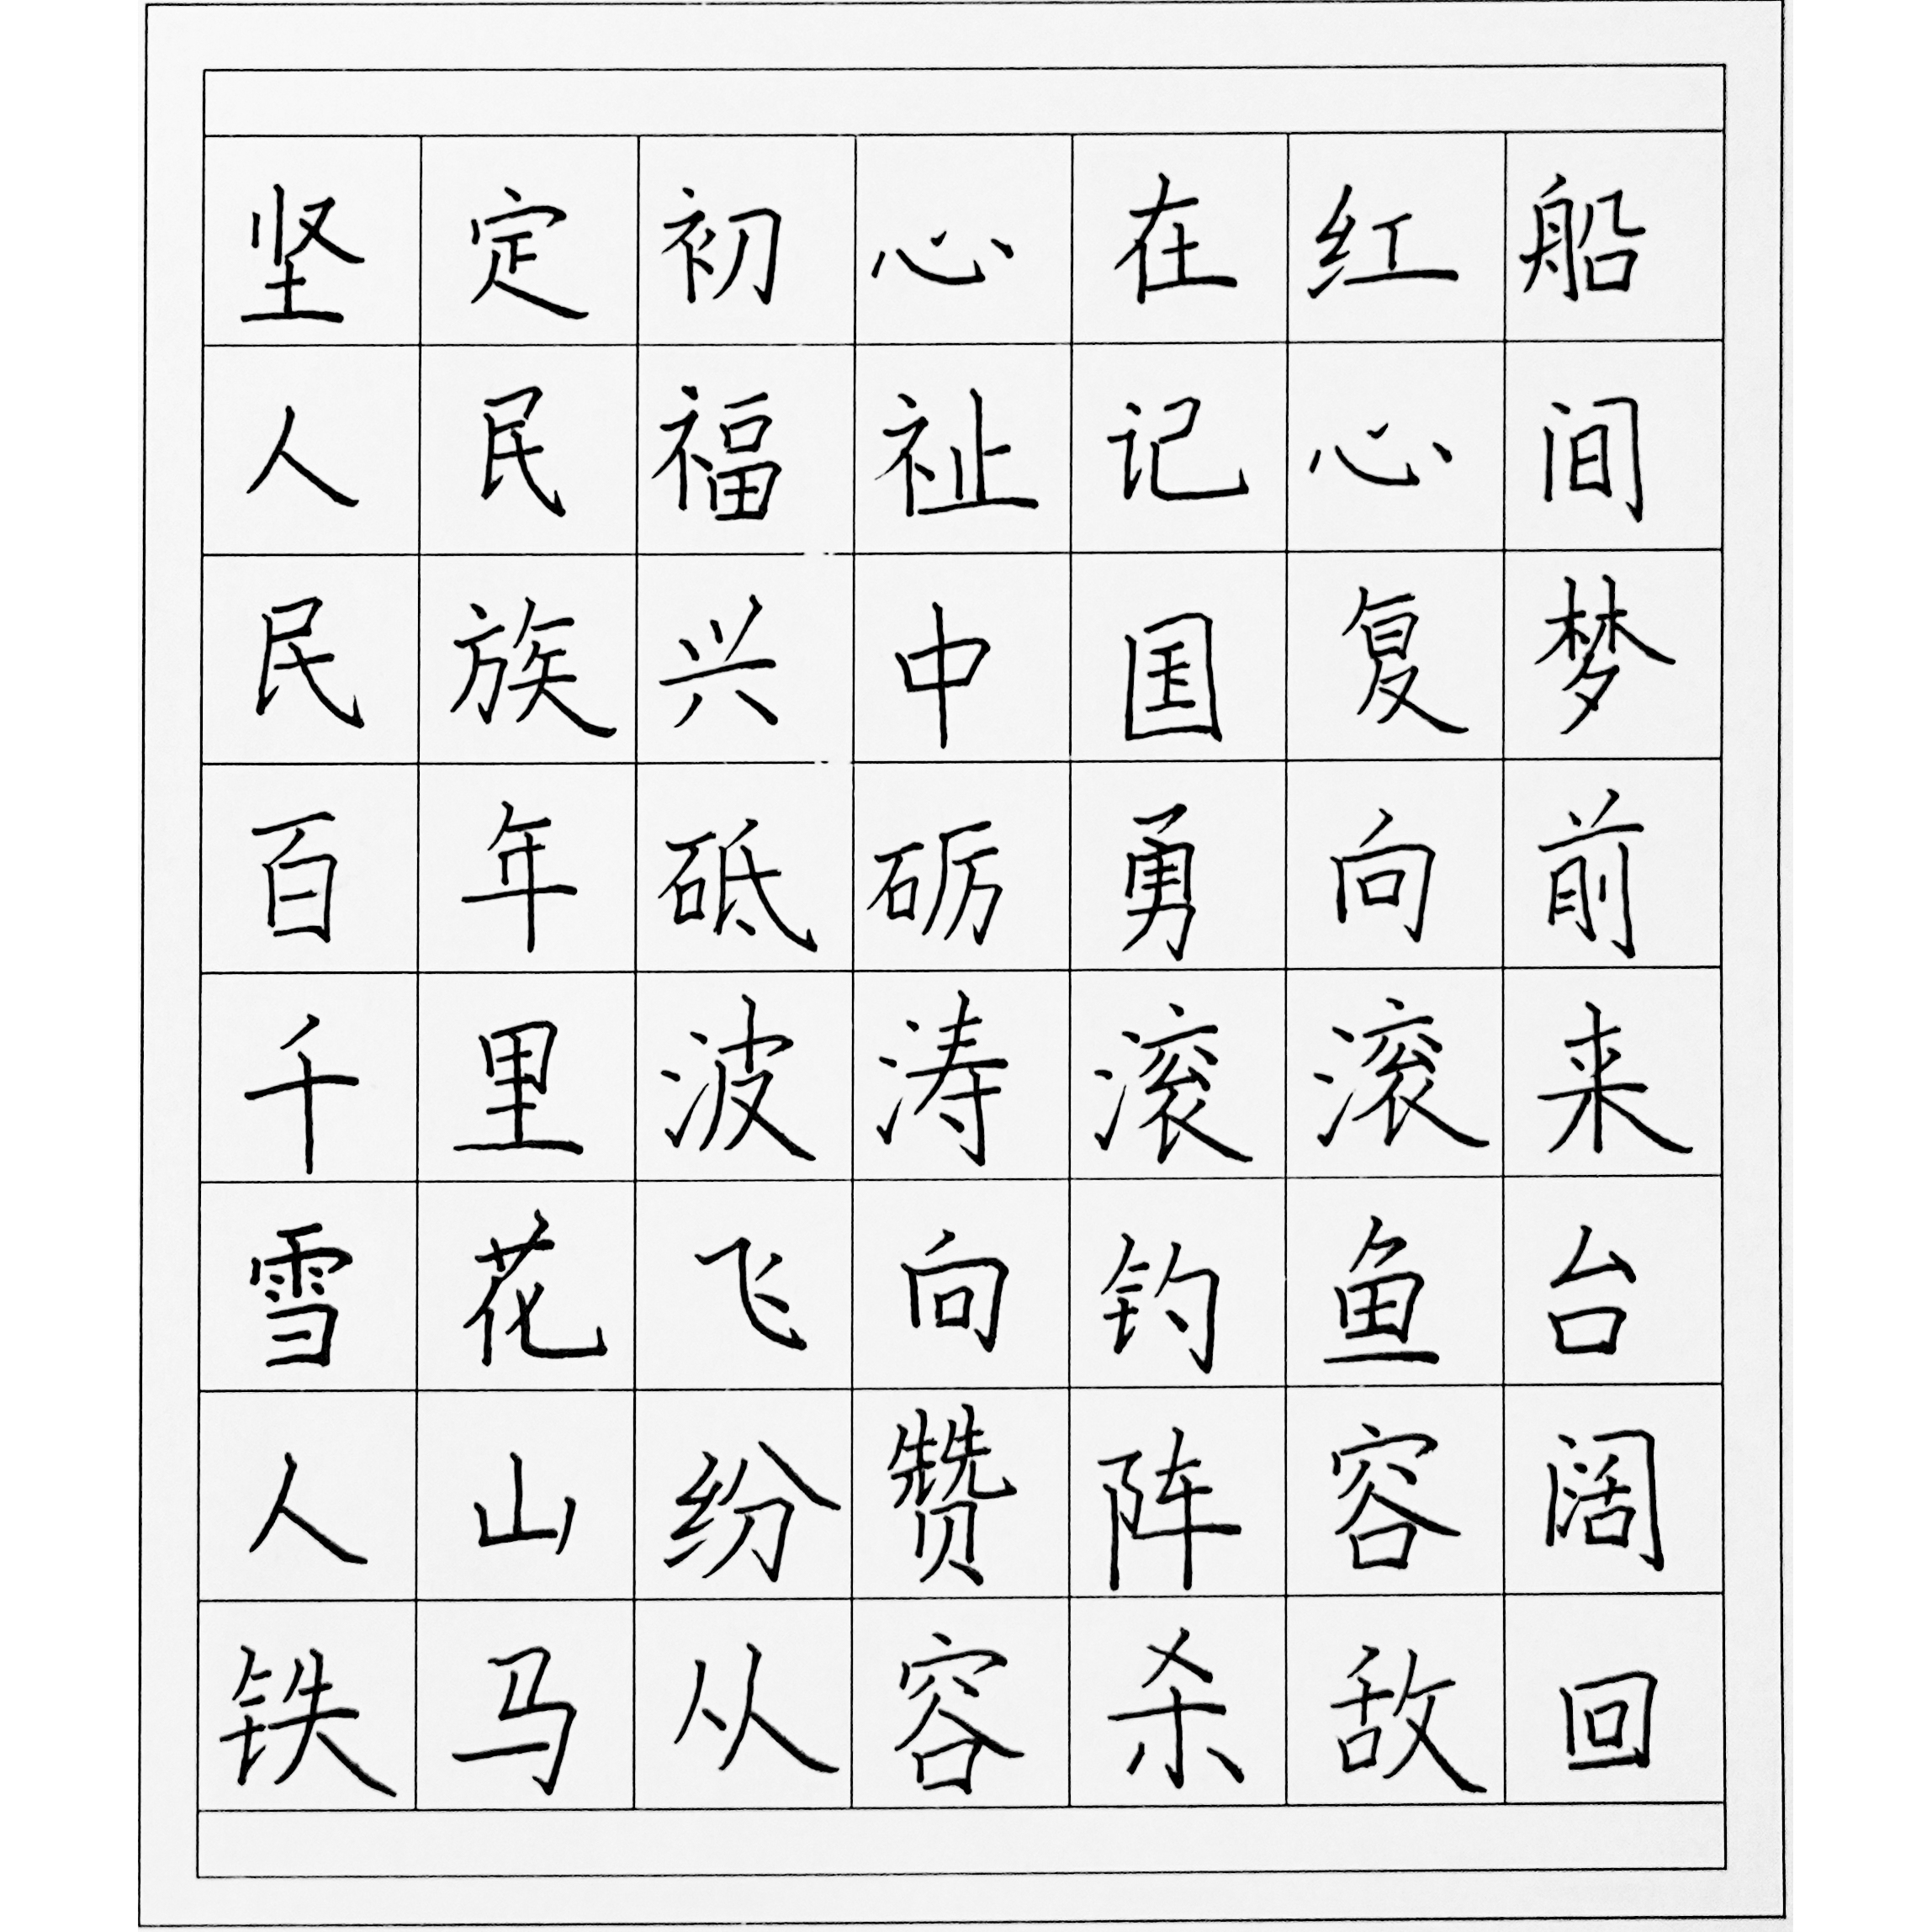 坚定初心在红船
人民福祉记心间
民族兴中国复梦
百年砥砺勇向前
千里波涛滚滚来
雪花飞向钓鱼台
人山纷赞阵容阔
铁马从容杀敌回